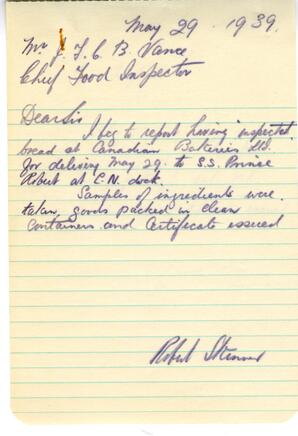 May 29 - 1939.
Mr J. F. C. B. Vance
Chief Food Inspector
Dear Sir
I beg to report having inspected
bread at Canadian Bakeries Ltd.
for delivry May 29. to S.S. Prince
Robert at C.N. dock.
Samples of ingredients were
taken, goods packed in clean
containers and Certificate issued
Robert